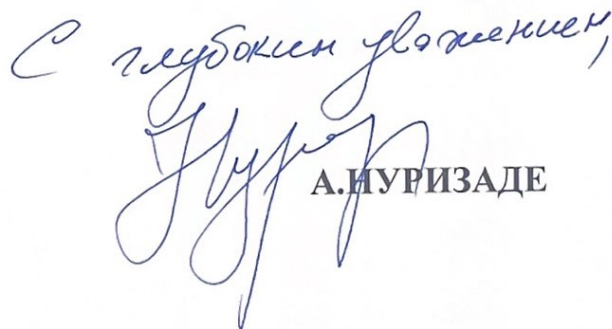 С глубоким уважением,
А.НУРИЗАДЕ